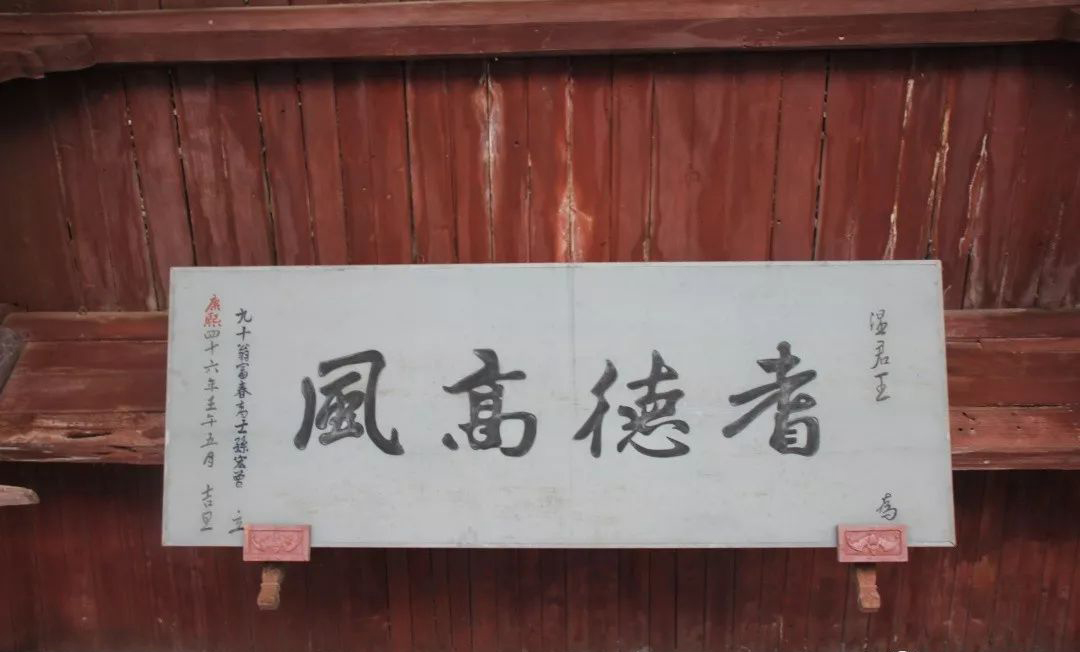 温君王 為
耆德高風
九十翁富春高士孫宏曾 立
康熙四十六年壬午五月 吉旦